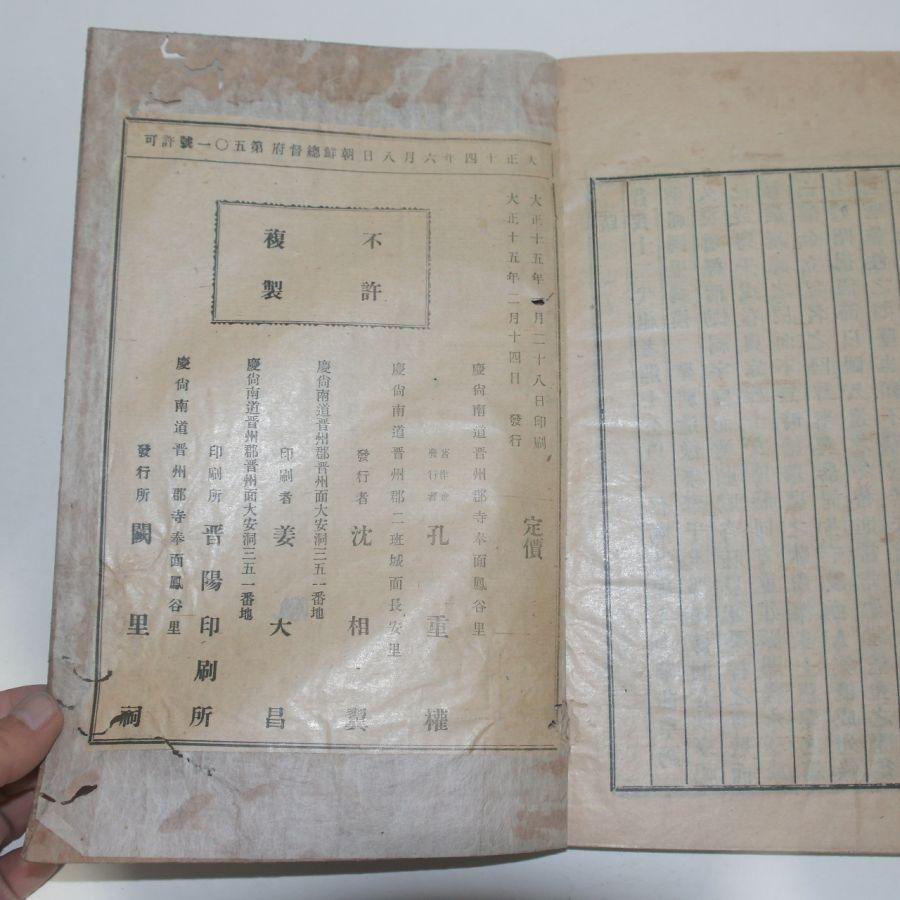 大正十四年六月八日朝鮮總督府第五〇一號許可
不許
複製
大正十五年 月二十八日印刷
大正十五年二月十四日 發行
定價
慶尙南道晋州郡寺奉面鳳谷里
著作兼
發行者 孔重權
慶尙南道晋州郡二班城面長安里
發行者 沈相翼
慶尙南道晋州郡晋州面大安洞三五一番地
印刷者 姜大昌
慶尙南道晋州郡晋州面大安洞三五一番地
印刷所 晋陽印刷所
慶尙南道晋州郡寺奉面鳳谷里
發行所 闕里祠